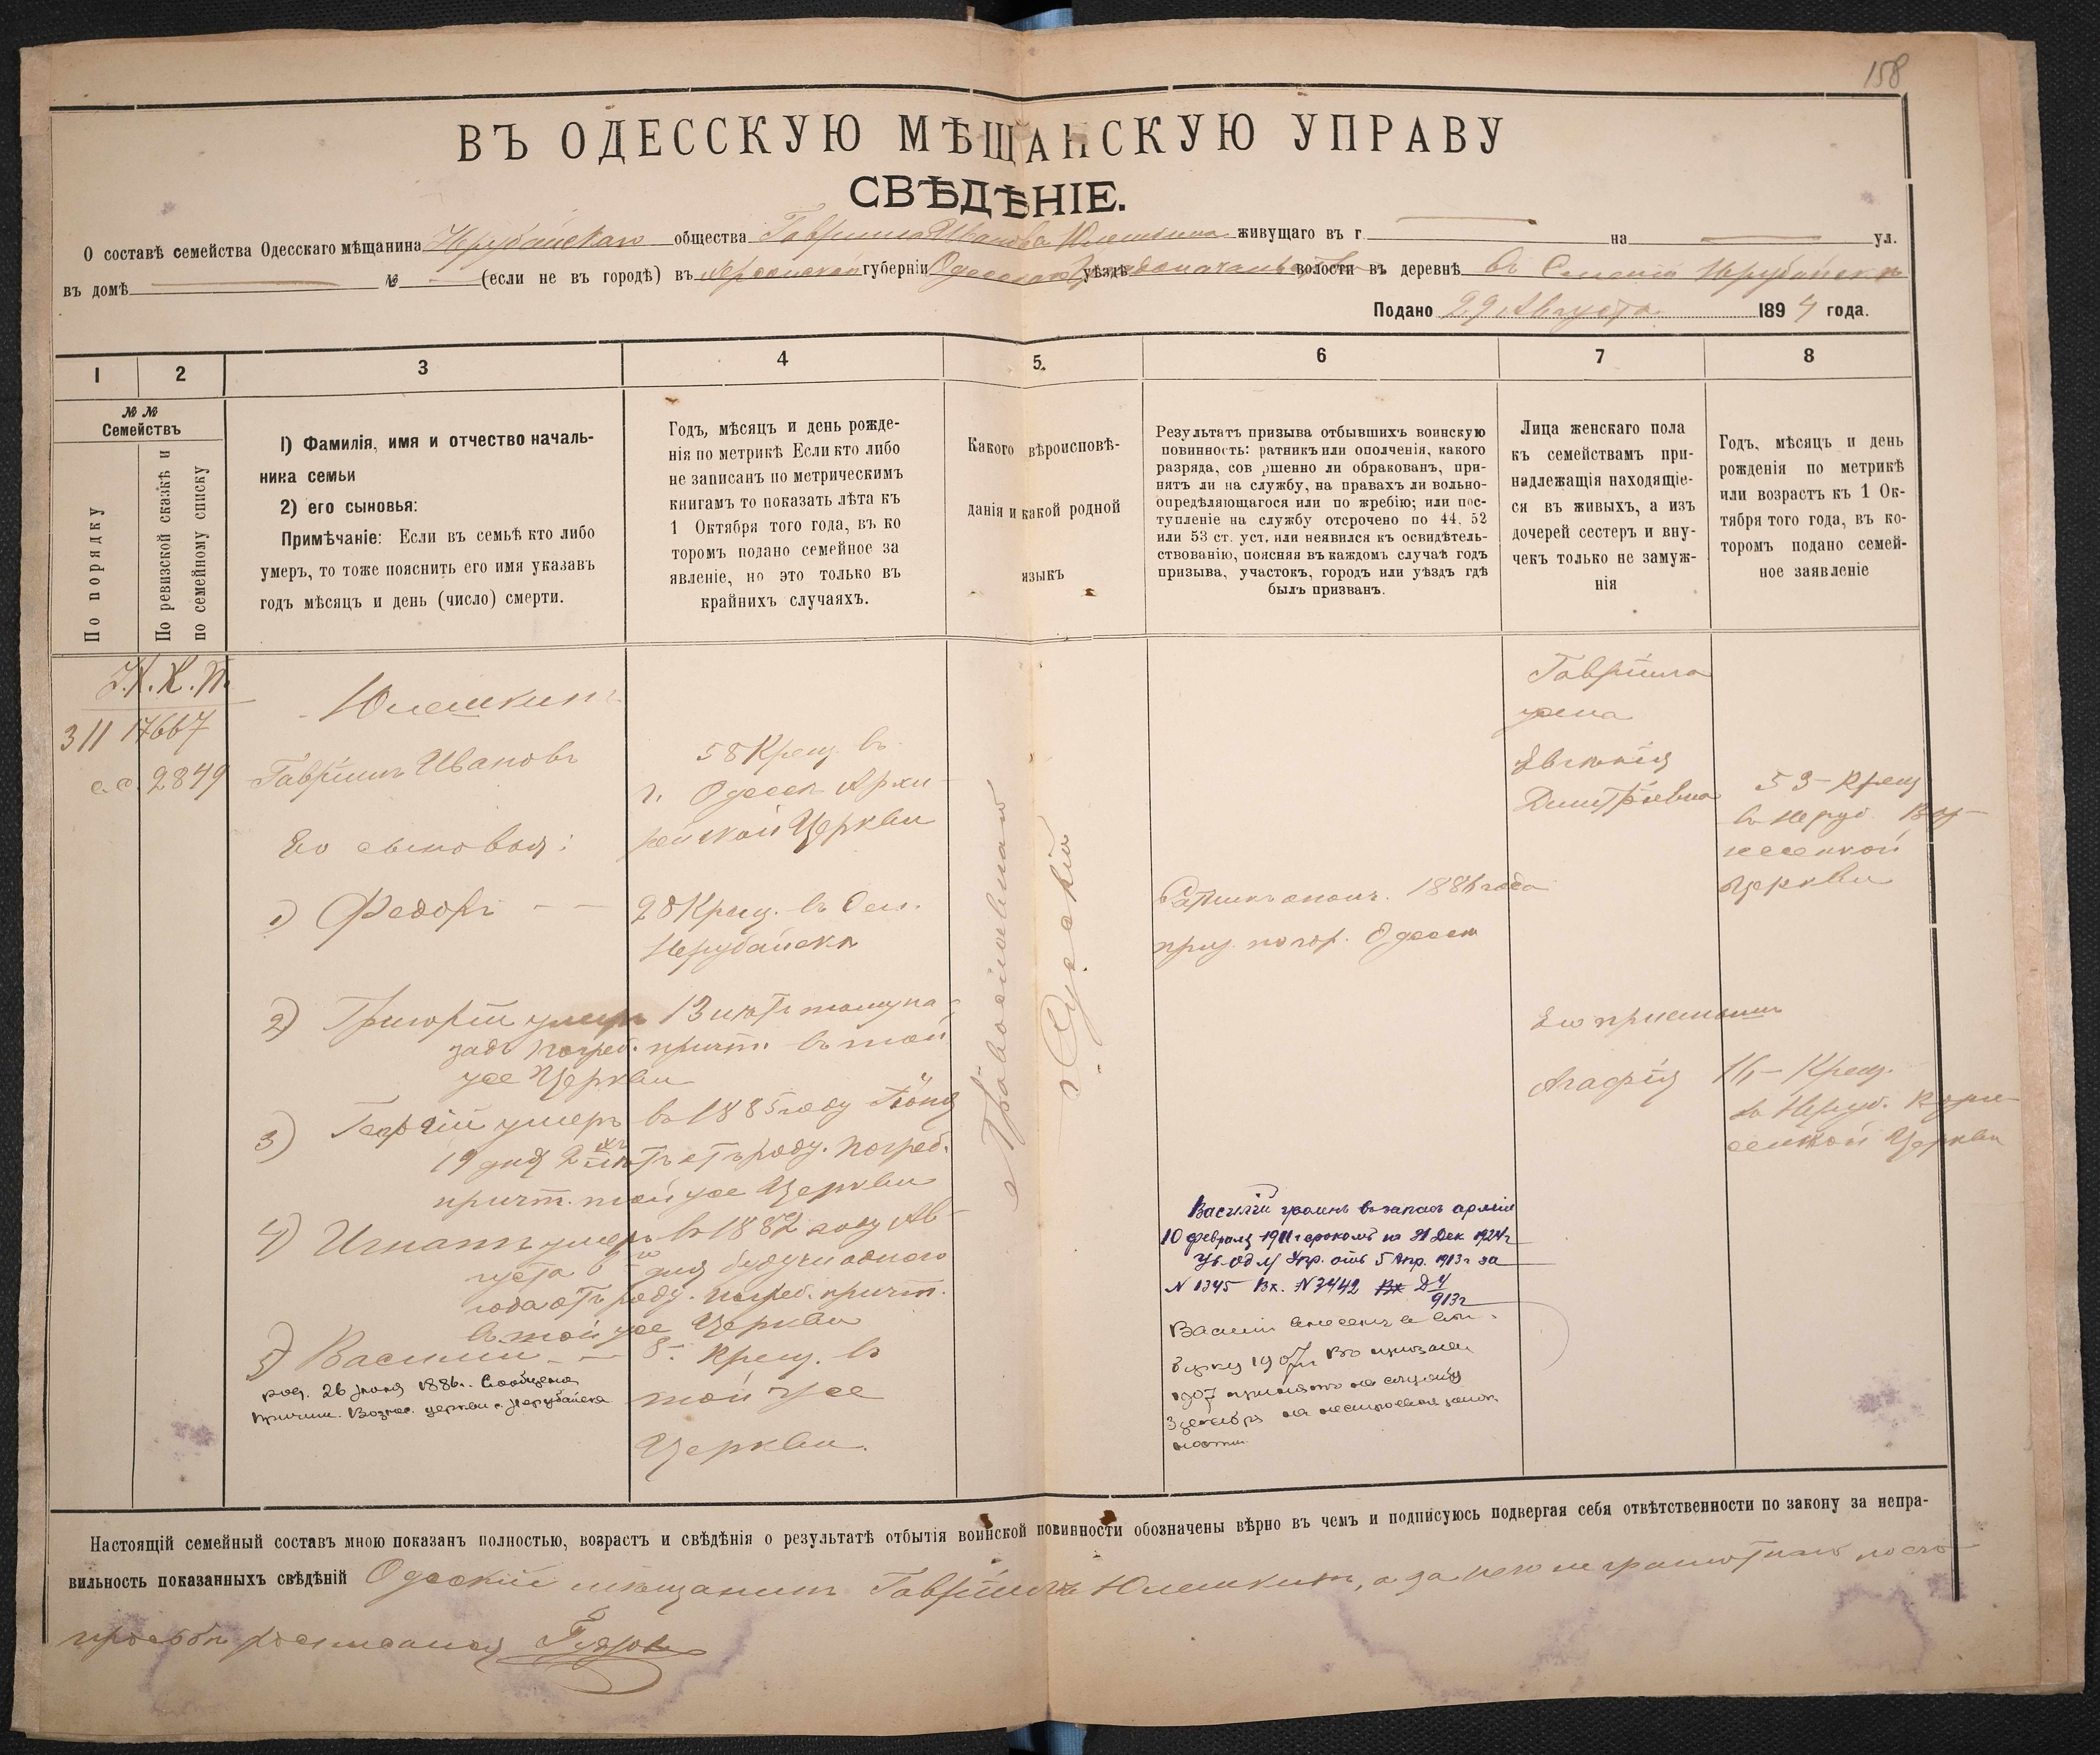 158
ВЪ ОДЕССКУЮ МѢЩАНСКУЮ УПРАВУ
СВѢДѢНІЕ.
О составѣ семейства Одесскаго мѣщанина Нерубайскаго общества Гавріила Иванова Юмшкина живущаго въ г. — на — ул.
въ домѣ — № — (если не въ городѣ) въ Херсонской губерніи Одесскаго Градоначальства уѣздѣ волости въ деревнѣ въ Селеніи Нерубайскѣ
Подано 29 Августа 1894 года.
1
2
3
4
5.
6
7
8
№ №
Семействъ
По порядку
По ревизской сказкѣ и
по семейному списку
1) Фамилія, имя и отчество началь-
ника семьи
2) его сыновья:
Примѣчаніе: Если въ семьѣ кто либо
умеръ, то тоже пояснить его имя указавъ
годъ мѣсяцъ и день (число) смерти.
Годъ, мѣсяцъ и день рожде-
нія по метрикѣ Если кто либо
не записанъ по метрическимъ
книгамъ то показать лѣта къ
1 Октября того года, въ ко
торомъ подано семейное за
явленіе, но это только въ
крайнихъ случаяхъ.
Какого вѣроисповѣ-
данія и какой родной
языкъ
Результатъ призыва отбывшихъ воинскую
повинность: ратникъ или ополченія, какого
разряда, сов ршенно ли обракованъ, при-
нятъ ли на службу, на правахъ ли вольно-
опредѣляющагося или по жребію; или пос-
тупленіе на службу отсрочено по 44. 52
или 53 ст. уст. или неявился къ освидѣтель-
ствованію, поясняя въ каждомъ случаѣ годъ
призыва, участокъ, городъ или уѣздъ гдѣ
былъ призванъ.
Лица женскаго пола
къ семействамъ при-
надлежащія находящіе-
ся въ живыхъ, а изъ
дочерей сестеръ и вну-
чекъ только не замуж-
нія
Годъ, мѣсяцъ и день
рожденія по метрикѣ
или возрастъ къ 1 Ок-
тября того года, въ ко-
торомъ подано семей-
ное заявленіе
К. П.
311 17667
с.с. 2849
Юмшкинъ
Гавріилъ Ивановъ
58 Крещ. въ
г. Одессѣ Архи-
рейской Церкви
Его сыновья:
1) Федоръ — —
28 Крещ. въ Сел.
Нерубайскѣ
2) Григорій умеръ 13 лѣтъ тому на-
задъ погреб. причт. въ той
же Церкви
3) Георгій умеръ въ 1885 году Іюня
19 дня 2хъ лѣтъ отъ роду. Погреб.
причт. той же Церкви
4) Игнатъ умеръ въ 1882 году Ав-
густа 6го дня будучи одного
года отъ роду. погреб. причт.
въ той же Церкви
5) Василий — —
8. крещ. въ
той же
Церкви.
род. 26 1886г. Сообщена
причт. Вознес. церкви с. Нерубайска
Православнаго
Русскій
Ратникъ ополч. 1886 года
приз. по гор. Одессѣ
Василій въ запасъ арміи
10 февраля 1911г срокомъ по 31 Дек 1924г
Ув. Од М Упр. отъ 5 Апр. 1913г за
№ 1345 Вх. №3442
913г
Василій внесенъ въ
1907г Въ призывѣ
1907 принятъ на службу
на
Гавріила
жена
Евгенія
Димитріевна
53 — Крещ
въ Неруб. Воз-
несенской
Церкви
Его пріемышъ
Агафія
16 — Крещ.
въ Неруб. Возне-
сенской Церкви
Настоящій семейный составъ мною показанъ полностью, возрастъ и свѣдѣнія о результатѣ отбытія воинской повинности обозначены вѣрно въ чемъ и подписуюсь подвергая себя отвѣтственности по закону за непра-
вильность показанныхъ свѣдѣній Одесскій мѣщанинъ Гавріилъ Юмшкинъ, а за него неграмотнаго по его
просьбѣ росписался